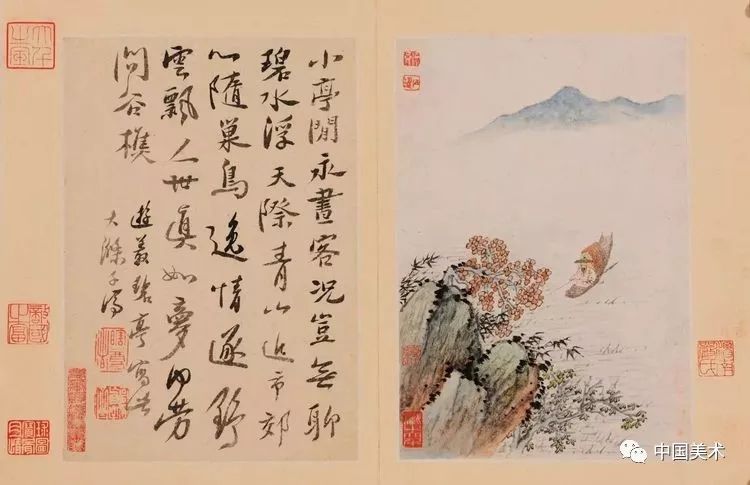 小亭閒永晝客況豈無聊
碧水浮天際青山近市郊
心隨巢鳥逸情逐野
雲飄人世真如夢何勞
問谷樵
遊碧亭寫
大滌子濟
中国美术